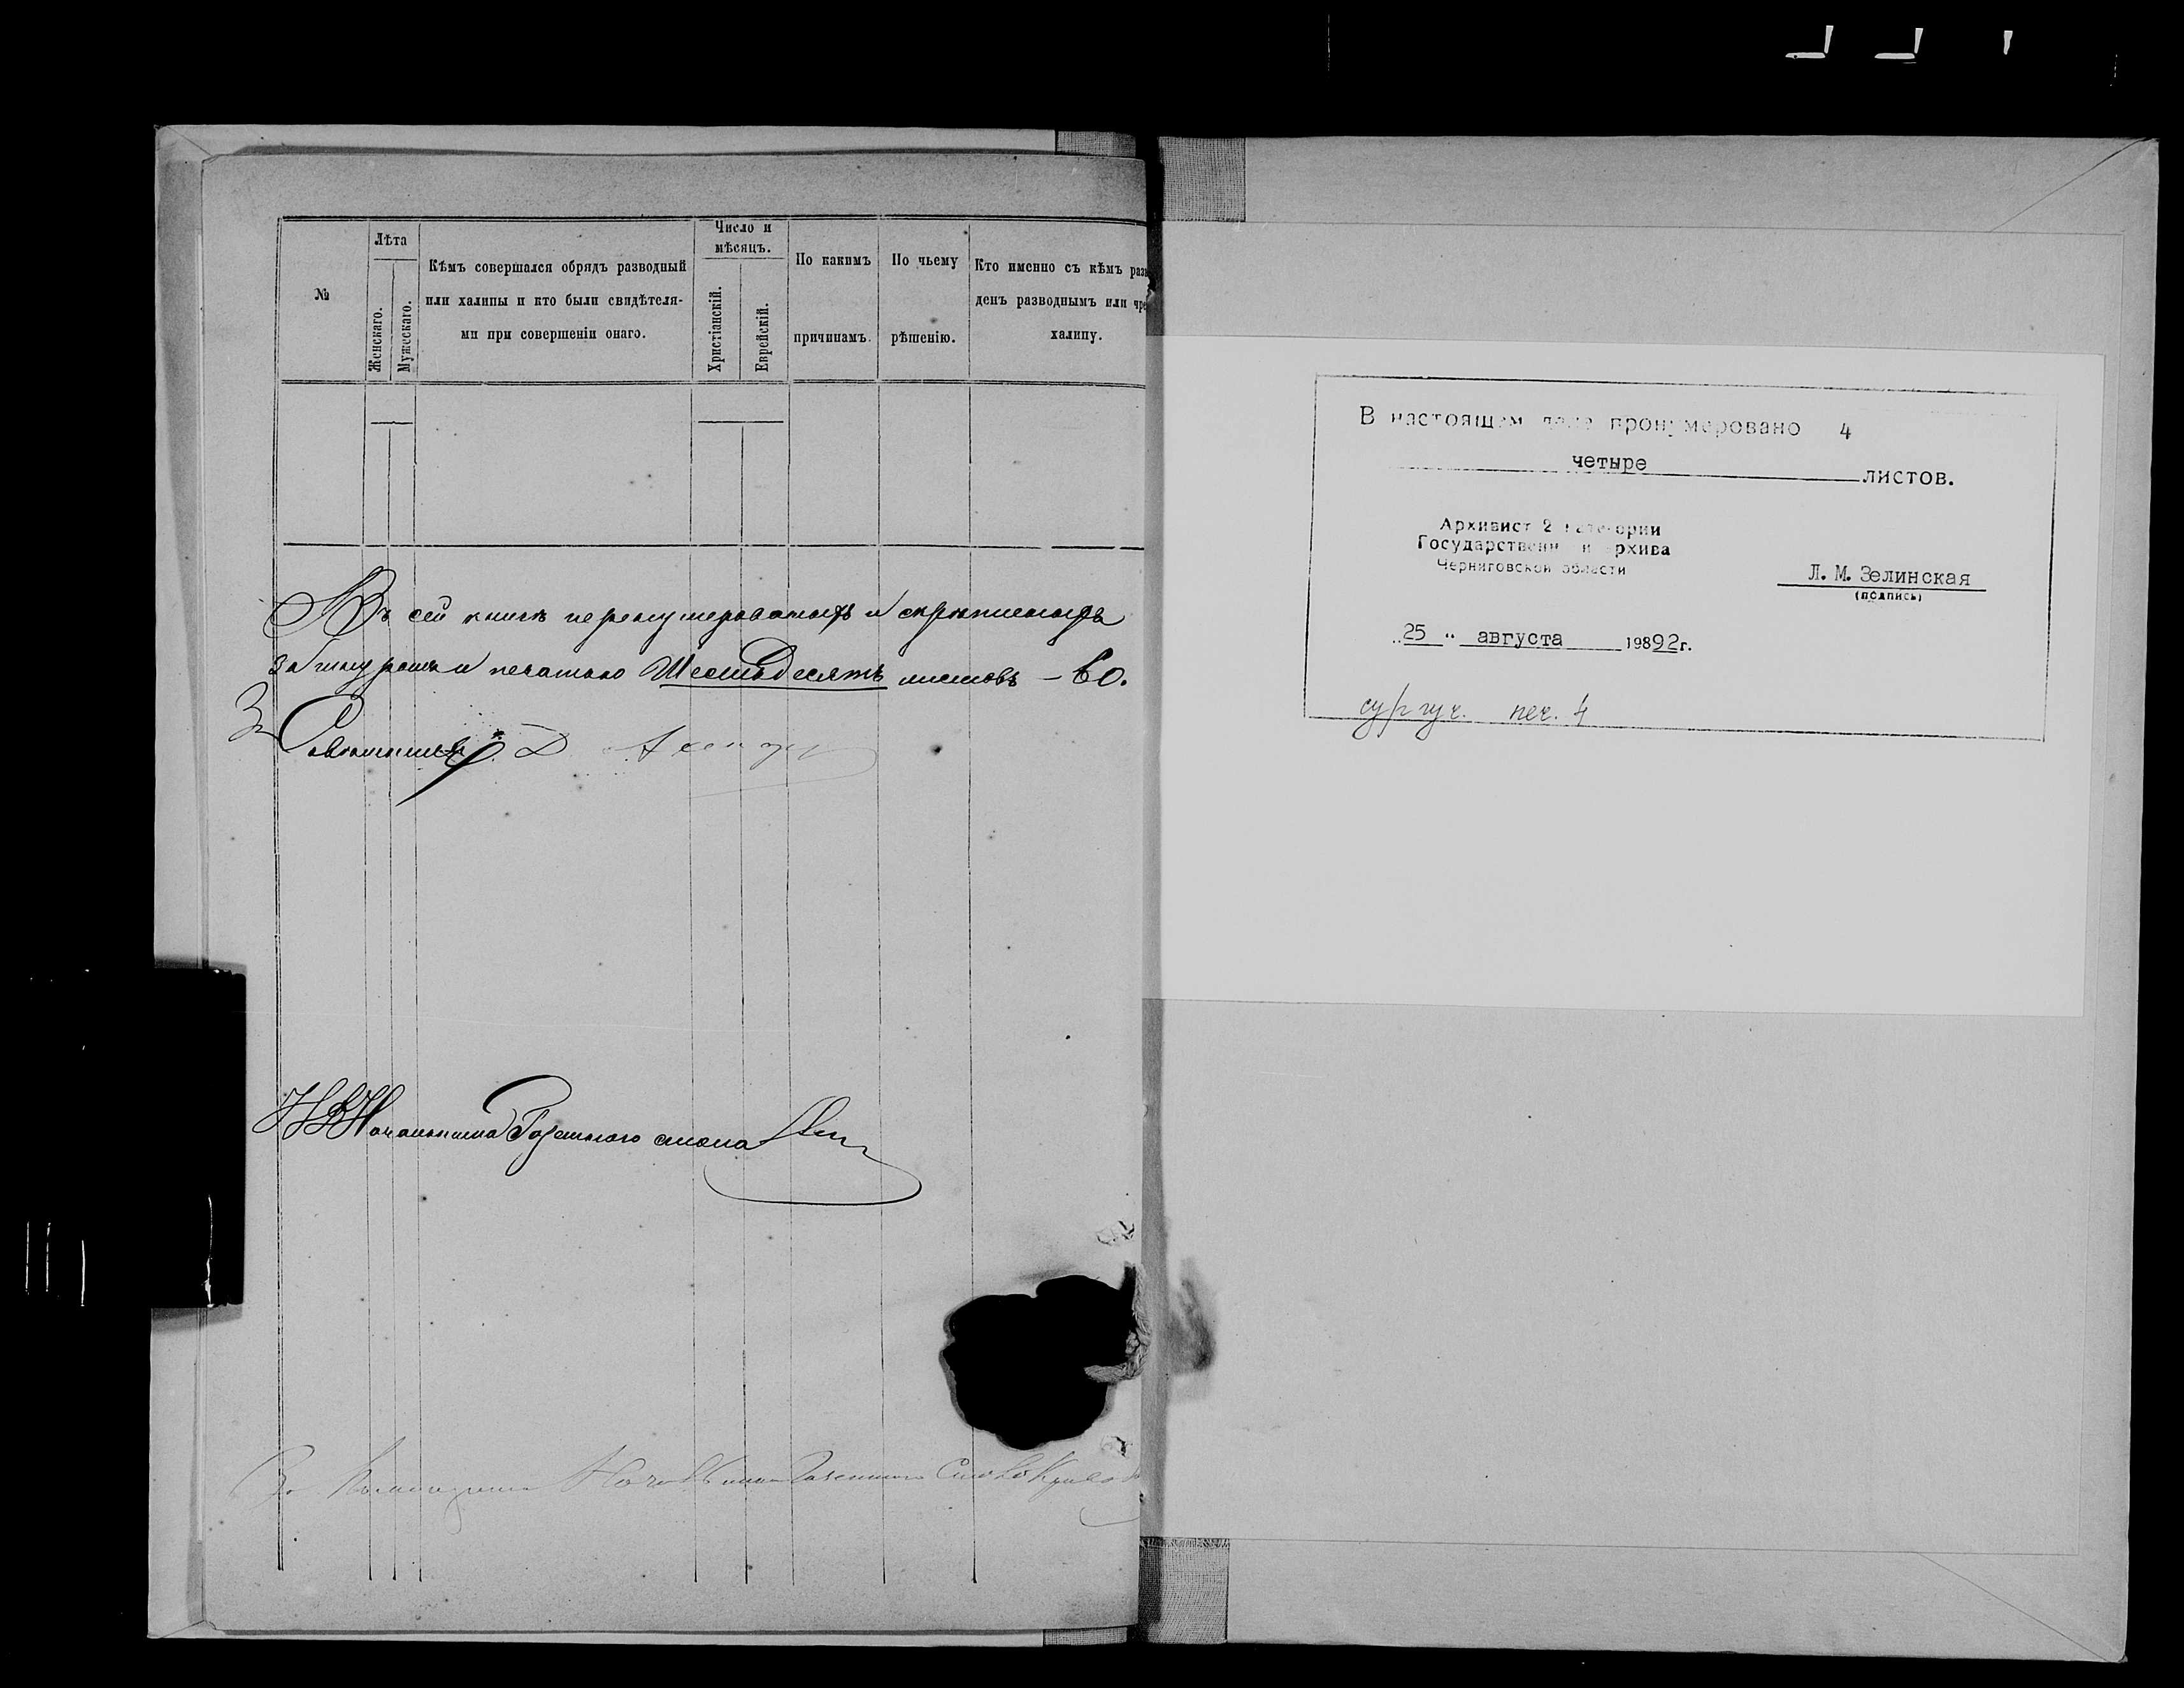 №
Лѣта
Женскаго.
Мужескаго.
Кѣмъ совершался обрядъ разводный
или халипы и кто были свидѣтеля-
ми при совершеніи онаго.
Число и
мѣсяцъ.
Христіанскій.
Еврейскій.
По какимъ
причинамъ.
По чьему
рѣшенію.
Кто именно съ кѣмъ разв
денъ разводнымъ или чре
халипу.
Въ сей книгѣ перенумерованныхъ и скрѣпленныхъ
за шнуромъ и печатью Шестьдесятъ листовъ – 60.
За Совѣтникъ
Начальника Газеннаго стола
За Начальника Газеннаго Стола
В настоящем деле пронумеровано 4
четыре листов.
Архивист 2 категории
Государственн архива
Черниговской области
Л. М. Зелинская
(подпись)
„25" августа 19892г.
сургуч. печ. 4